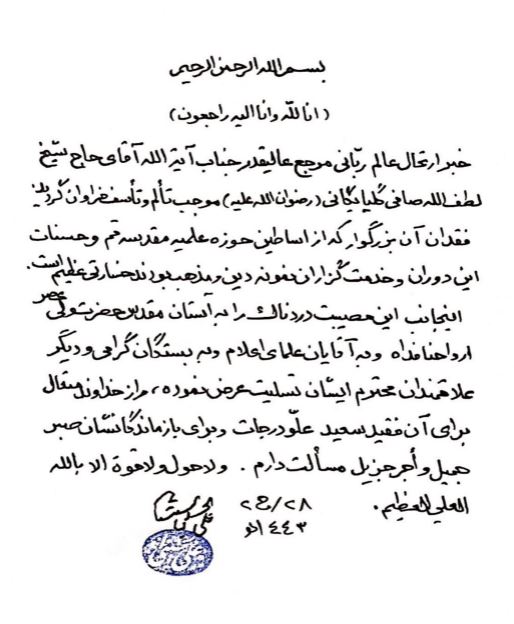 بسم الله الرحمن الرحیم
(انا للّه وانا الیه راجعون)
خبر ارتحال عالم ربّانی مرجع عالیقدر جناب آیة الله آقای حاج شیخ
لطف الله صافی گلپایگانی (رضوان الله علیه) موجب تألم وتأسف فراوان گردید
فقدان آن بزرگوار که از اساطین حوزه علمیه مقدسه قم و حسنات
این دوران وخدمت گزاران نمونه دین ومذهب بودند خسارتی عظیم است.
اینجانب این مصیبت دردناک را به آستان مقدس حضرت ولی عصر
ارواحنا فداه وبه آقایان علمای اعلام وبه بستگان گرامی ودیگر
علاقمندان محترم ایشان تسلیت عرض نموده، و از خداوند متعال
برای آن فقید سعید علّو درجات وبرای بازماندگانشان صبر
جمیل وأجر جزیل مسألت دارم. ولاحول ولاقوة الا بالله
العلي العظیم.
٢٨/ج٢
١٤٤٣ هـ
علي الحسیني السیستاني